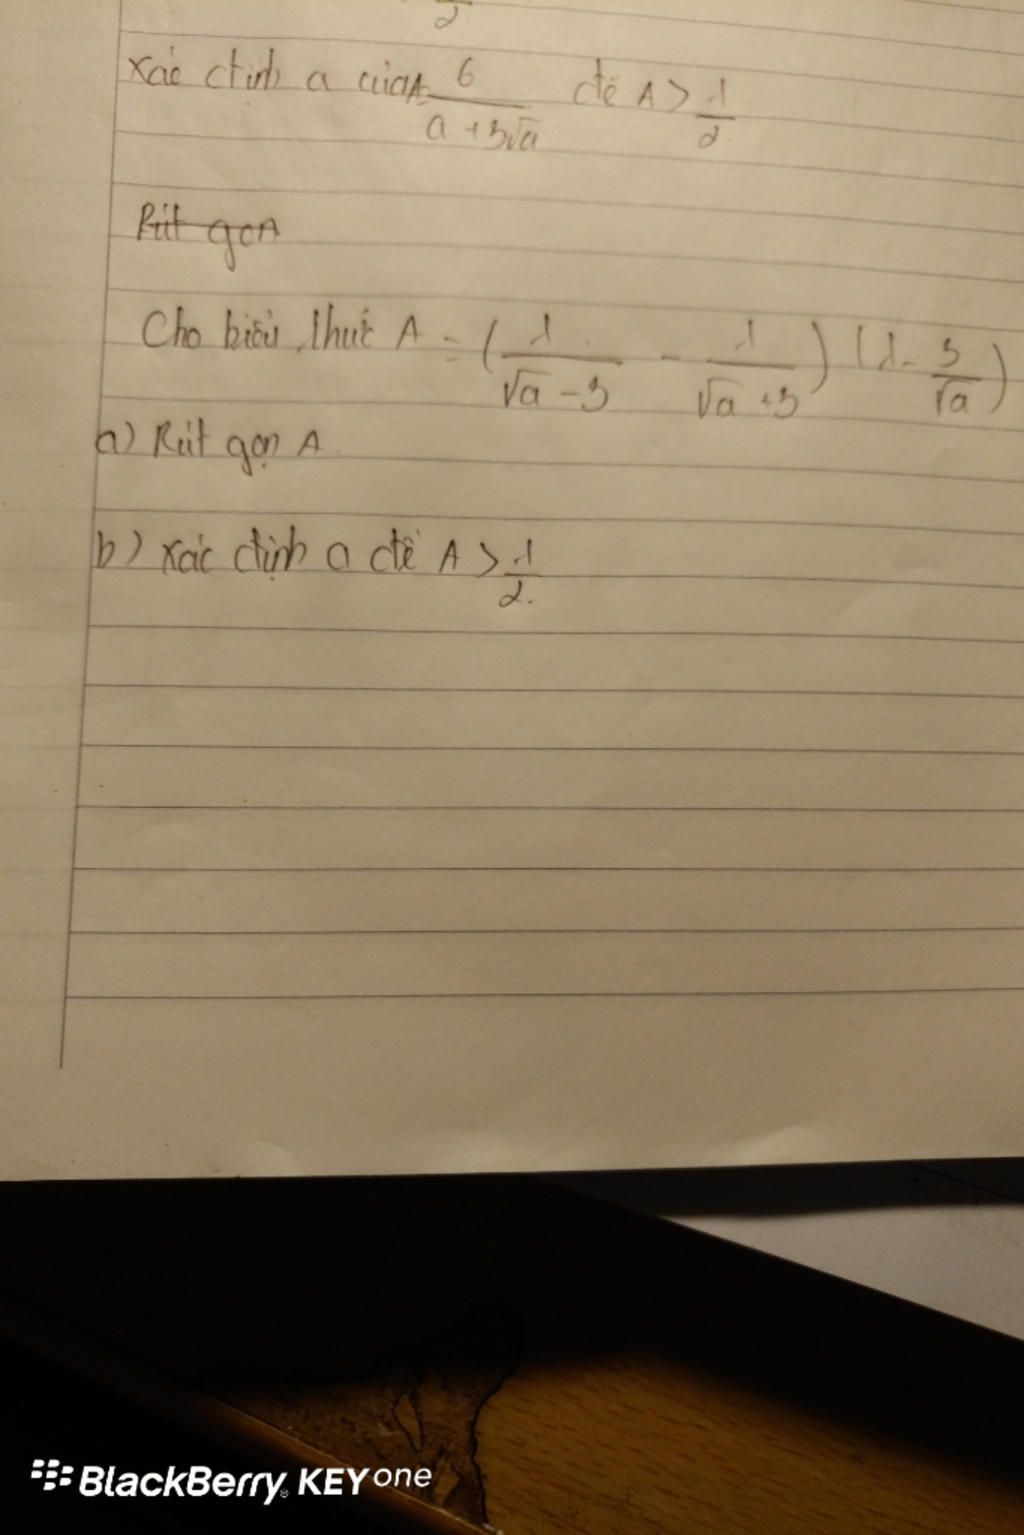 2
xác định a của A = 6/(a + 3√a) để A > 1/2
Rút gọn
Cho biểu thức A = (1/(√a - 3) - 1/(√a + 3)) (1 - 3/√a)
a) Rút gọn A
b) xác định a để A > 1/2.
BlackBerry KEYone